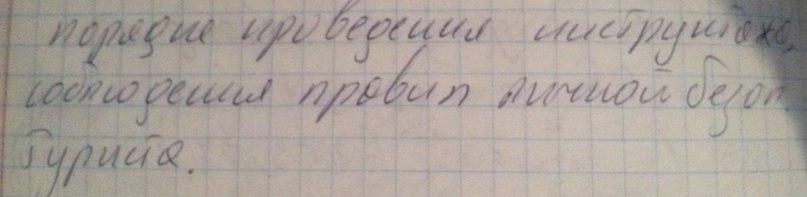 порядке проведения инструктажа,
соблюдения правил личной безоп.
туриста.